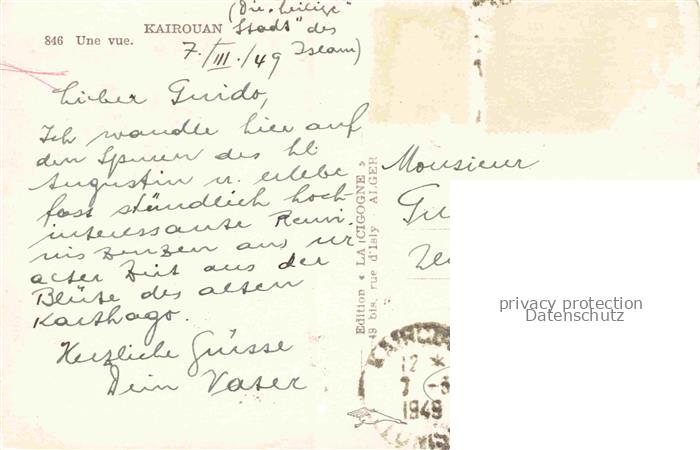 (Die "heilige"
846 Une vue. KAIROUAN Stadt" des
7./III./49 Islam)
Lieber Guido,
Ich wandle hier auf
den Spuren des hl.
Augustin u. erlebe
fast stündlich hoch-
interessante Remi-
niszenzen aus ur
alter Zeit aus der
Blüte des alten
Karthago.
Herzliche Grüsse
Dein Vater
Edition « LA CIGOGNE »
49 bis, rue d'Isly ALGER
Monsieur
Gu
KAIROU
12 *
7 -3
1949
TUNIS
privacy protection
Datenschutz